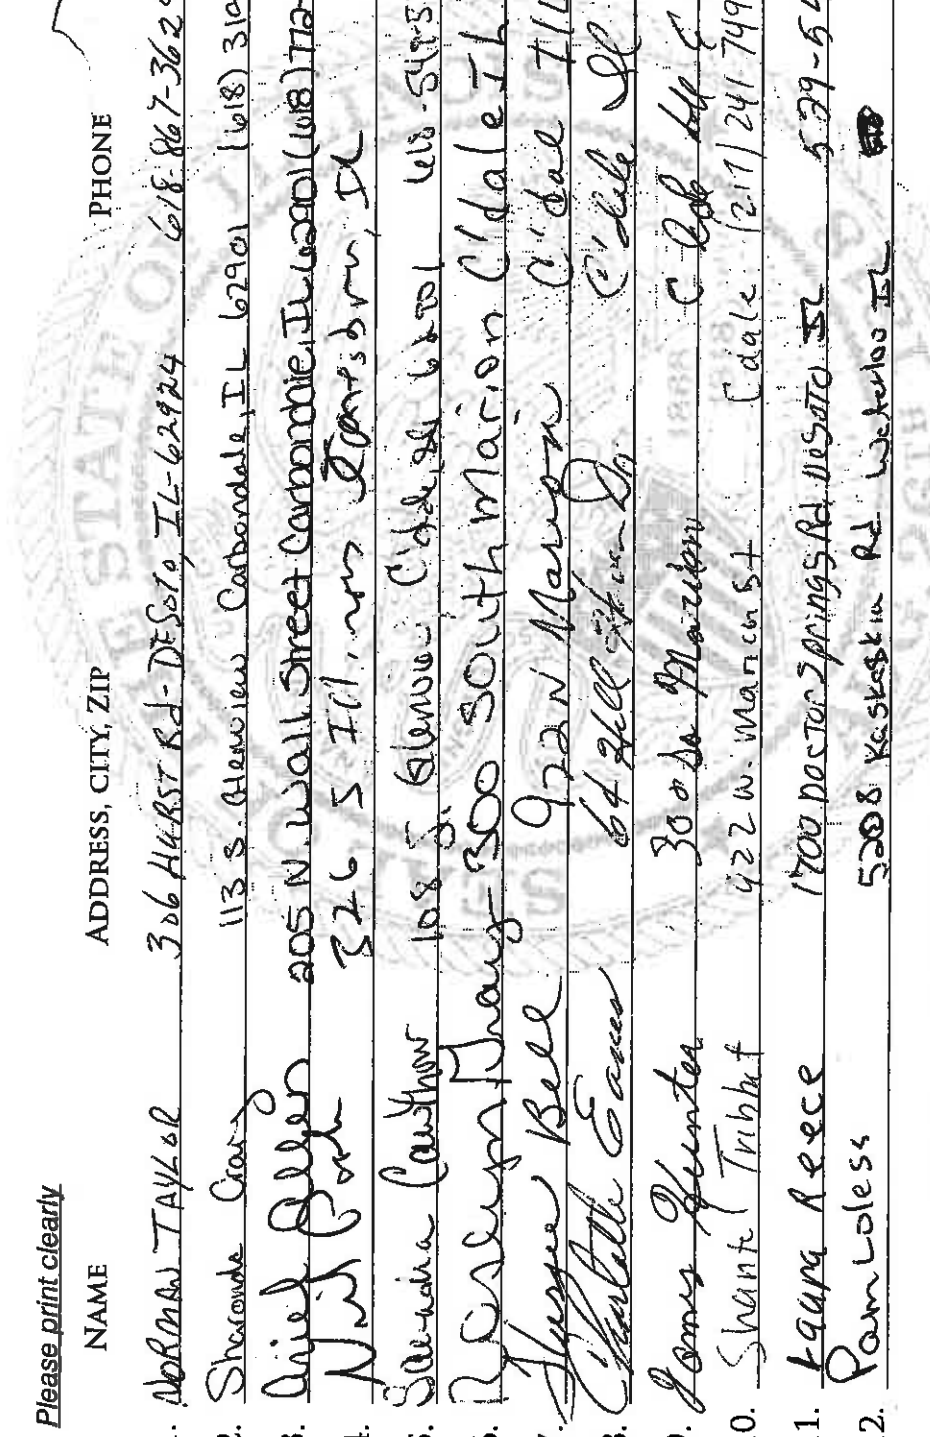 Please print clearly
NAME ADDRESS, CITY, ZIP PHONE
. NORMAN TAYLOR 306 HURST Rd-DESoto, IL-62924 618-867-362
2. Sharonda Crary 113 S. Glenview Carbondale, IL 62901 (618) 310
3. Ariel Allen 205 N. Wall Street Carbondale, IL 62901 (618) 772-
4. 326 S Illinois IL
5. Cawthon 108 S. Glenview C'dale, 62901 618-549-5
6. Roselyn Tracy 300 South Marion C'dale IL
7. Bell 922 N Marion C'dale Ill
8. Charlotte 64 C'dale Ill
9. James Hunter 300 So Marion C
0. Shante Tribbut 422 W. Marion St Cdale (217) 241 749
1. Laura Reece 1700 DOCTOR Springs Rd Desoto IL 529-5
2. Pam Loless 5208 Kaskaskia Rd Waterloo IL
STATE OF ILLINOIS
SEAL OF THE
1868 1818